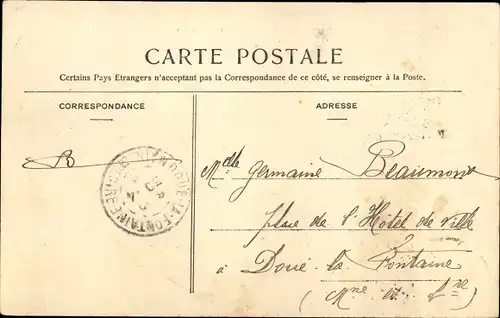 CARTE POSTALE
Certains Pays Etrangers n'acceptant pas la Correspondance de ce côté, se renseigner à la Poste.
CORRESPONDANCE
ADRESSE
B
Mdlle Germaine Beaumont
place de l'Hôtel de Ville
à Doué-la-Fontaine
(Mne et Lre)
DOUÉ-LA-FONTAINE